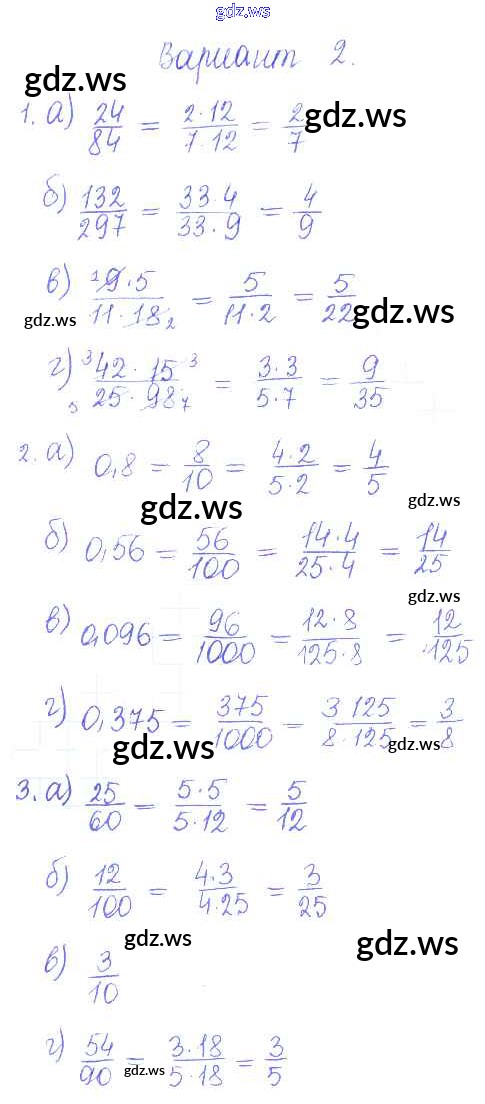 gdz.ws
Вариант 2.
gdz.ws
1. а) 24/84 = 2·12/7·12 = 2/7 gdz.ws
б) 132/297 = 33·4/33·9 = 4/9
в) ¹9·5/11·18₂ = 5/11·2 = 5/22 gdz.ws
gdz.ws
г) ³42·15³/₅25·98₇ = 3·3/5·7 = 9/35
2. а) 0,8 = 8/10 = 4·2/5·2 = 4/5
gdz.ws gdz.ws
б) 0,56 = 56/100 = 14·4/25·4 = 14/25
gdz.ws
в) 0,096 = 96/1000 = 12·8/125·8 = 12/125
г) 0,375 = 375/1000 = 3 125/8·125 = 3/8
gdz.ws gdz.ws
3. а) 25/60 = 5·5/5·12 = 5/12
б) 12/100 = 4·3/4·25 = 3/25
gdz.ws gdz.ws
в) 3/10
г) 54/90 = 3·18/5·18 = 3/5
gdz.ws gdz.ws